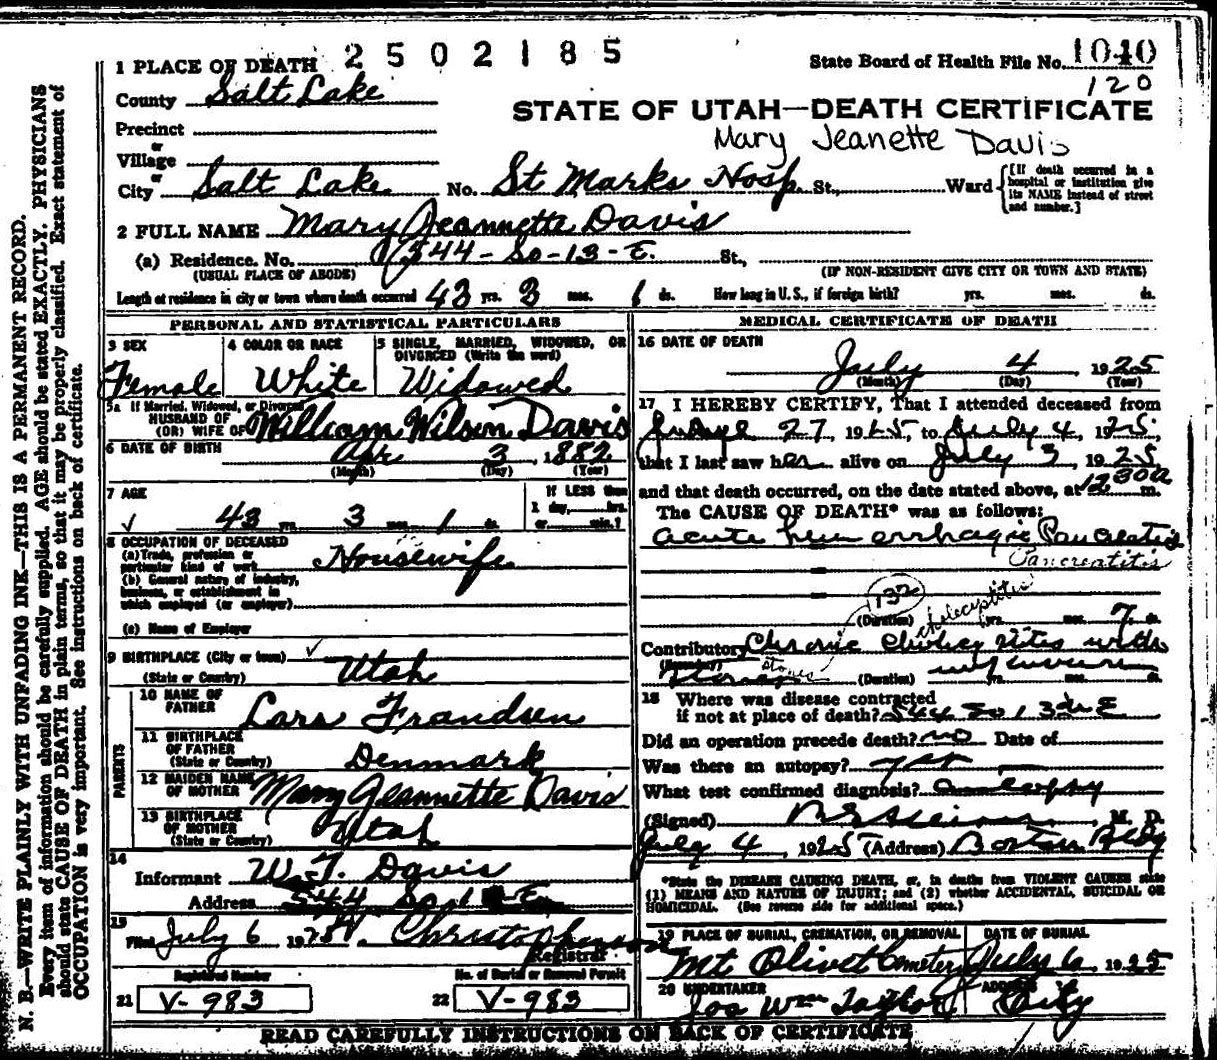 2502185
State Board of Health File No. 1040
120
1 PLACE OF DEATH
County Salt Lake
STATE OF UTAH—DEATH CERTIFICATE
Precinct
Mary Jeanette Davis
or
Village
or
City Salt Lake No. St Marks Hosp. St., Ward
[If death occurred in a hospital or institution give its NAME instead of street and number.]
2 FULL NAME Mary Jeannette Davis
(a) Residence. No. 544-So-13-E. St.,
(USUAL PLACE OF ABODE) (IF NON-RESIDENT GIVE CITY OR TOWN AND STATE)
Length of residence in city or town where death occurred 43 yrs. 3 mos. 1 ds. How long in U. S., if foreign birth? yrs. mos. ds.
PERSONAL AND STATISTICAL PARTICULARS
3 SEX
Female
4 COLOR OR RACE
White
5 SINGLE, MARRIED, WIDOWED, OR
DIVORCED (Write the word)
Widowed
5a If Married, Widowed, or Divorced
HUSBAND OF
(OR) WIFE OF William Wilson Davis
6 DATE OF BIRTH Apr 3, 1882
(Month) (Day) (Year)
7 AGE
43 yrs. 3 mos. 1 ds.
If LESS than
1 day, hrs.
or min.?
8 OCCUPATION OF DECEASED
(a) Trade, profession or
particular kind of work Housewife
(b) General nature of industry,
business, or establishment in
which employed (or employer)
(c) Name of Employer
9 BIRTHPLACE (City or town)
(State or Country) Utah
PARENTS
10 NAME OF
FATHER Lars Frandsen
11 BIRTHPLACE
OF FATHER
(State or Country) Denmark
12 MAIDEN NAME
OF MOTHER Mary Jeannette Davis
13 BIRTHPLACE
OF MOTHER
(State or Country) Utah
14
Informant W. T. Davis
Address 544 So 1 E
15
Filed July 6 1925 Christopherson
Registrar
Registered Number No. of Burial or Removal Permit
21 V-983 22 V-983
MEDICAL CERTIFICATE OF DEATH
16 DATE OF DEATH
July 4 1925
(Month) (Day) (Year)
17 I HEREBY CERTIFY, That I attended deceased from
27, 1925, to July 4, 1925,
that I last saw her alive on July 3, 1925
and that death occurred, on the date stated above, at 12 30a m.
The CAUSE OF DEATH* was as follows:
acute hemorrhagic Pancreatis
Pancreatitis
132
(Duration) yrs. mos. 7 ds.
cholecystitis
Contributory Chronic with
(Secondary) stones (Duration) yrs. ds.
18 Where was disease contracted
if not at place of death? 544 So 13th E
Did an operation precede death? no Date of
Was there an autopsy? yes
What test confirmed diagnosis? autopsy
(Signed) M. D.
July 4, 1925 (Address) Boston Bldg
*State the DISEASE CAUSING DEATH, or, in deaths from VIOLENT CAUSES state
(1) MEANS AND NATURE OF INJURY; and (2) whether ACCIDENTAL, SUICIDAL OR
HOMICIDAL. (See reverse side for additional space.)
19 PLACE OF BURIAL, CREMATION, OR REMOVAL
Mt Olivet Cemetery
DATE OF BURIAL
July 6, 1925
20 UNDERTAKER
Jos Wm Taylor
ADDRESS
City
READ CAREFULLY INSTRUCTIONS ON BACK OF CERTIFICATE
N. B.—WRITE PLAINLY WITH UNFADING INK—THIS IS A PERMANENT RECORD.
Every item of information should be carefully supplied. AGE should be stated EXACTLY. PHYSICIANS
should state CAUSE OF DEATH in plain terms, so that it may be properly classified. Exact statement of
OCCUPATION is very important. See instructions on back of certificate.